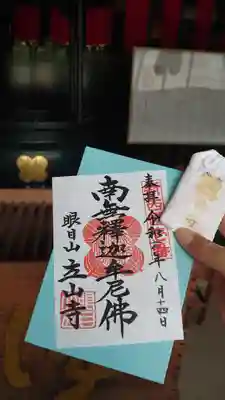 奉拝 令和二年八月十四日
南無釋迦牟尼佛
眼目山 立山寺